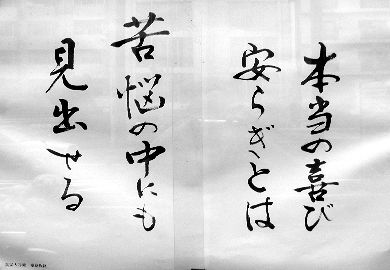 本当の喜び
安らぎとは
苦悩の中にも
見出せる